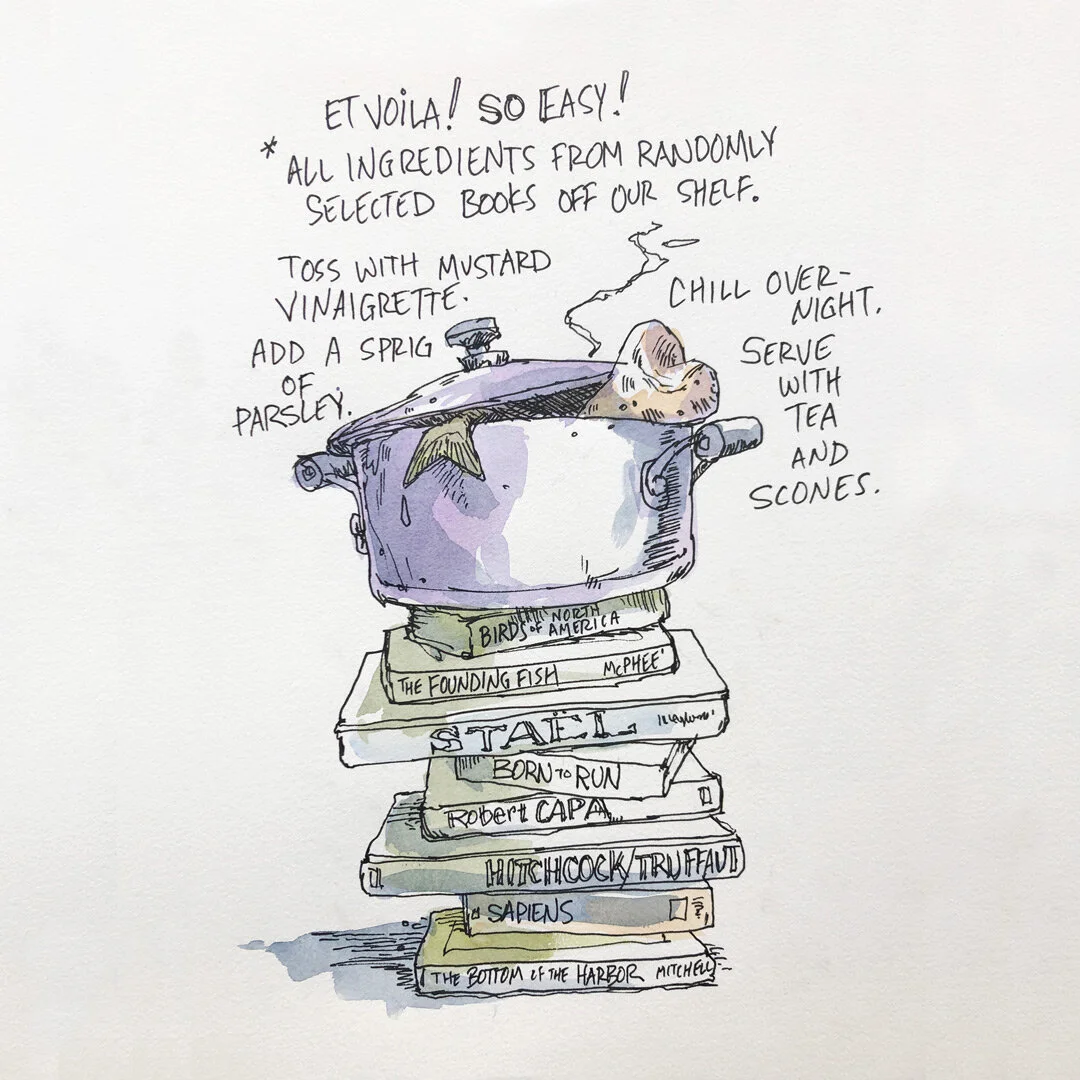 ET VOILA! SO EASY!
* ALL INGREDIENTS FROM RANDOMLY
SELECTED BOOKS OFF OUR SHELF.
TOSS WITH MUSTARD
VINAIGRETTE.
ADD A SPRIG
OF
PARSLEY.
CHILL OVER-
NIGHT.
SERVE
WITH
TEA
AND
SCONES.
NORTH
BIRDS OF AMERICA
THE FOUNDING FISH McPHEE
STAËL
BORN TO RUN
Robert CAPA
HITCHCOCK/TRUFFAUT
SAPIENS
THE BOTTOM OF THE HARBOR MITCHELL